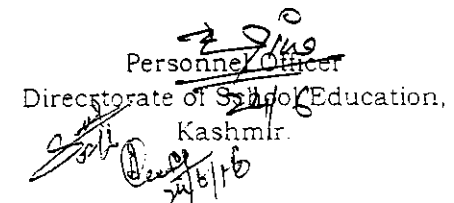 Personnel Officer
Direcrtorate of School Education,
Kashmir.
24/6
24/6/16